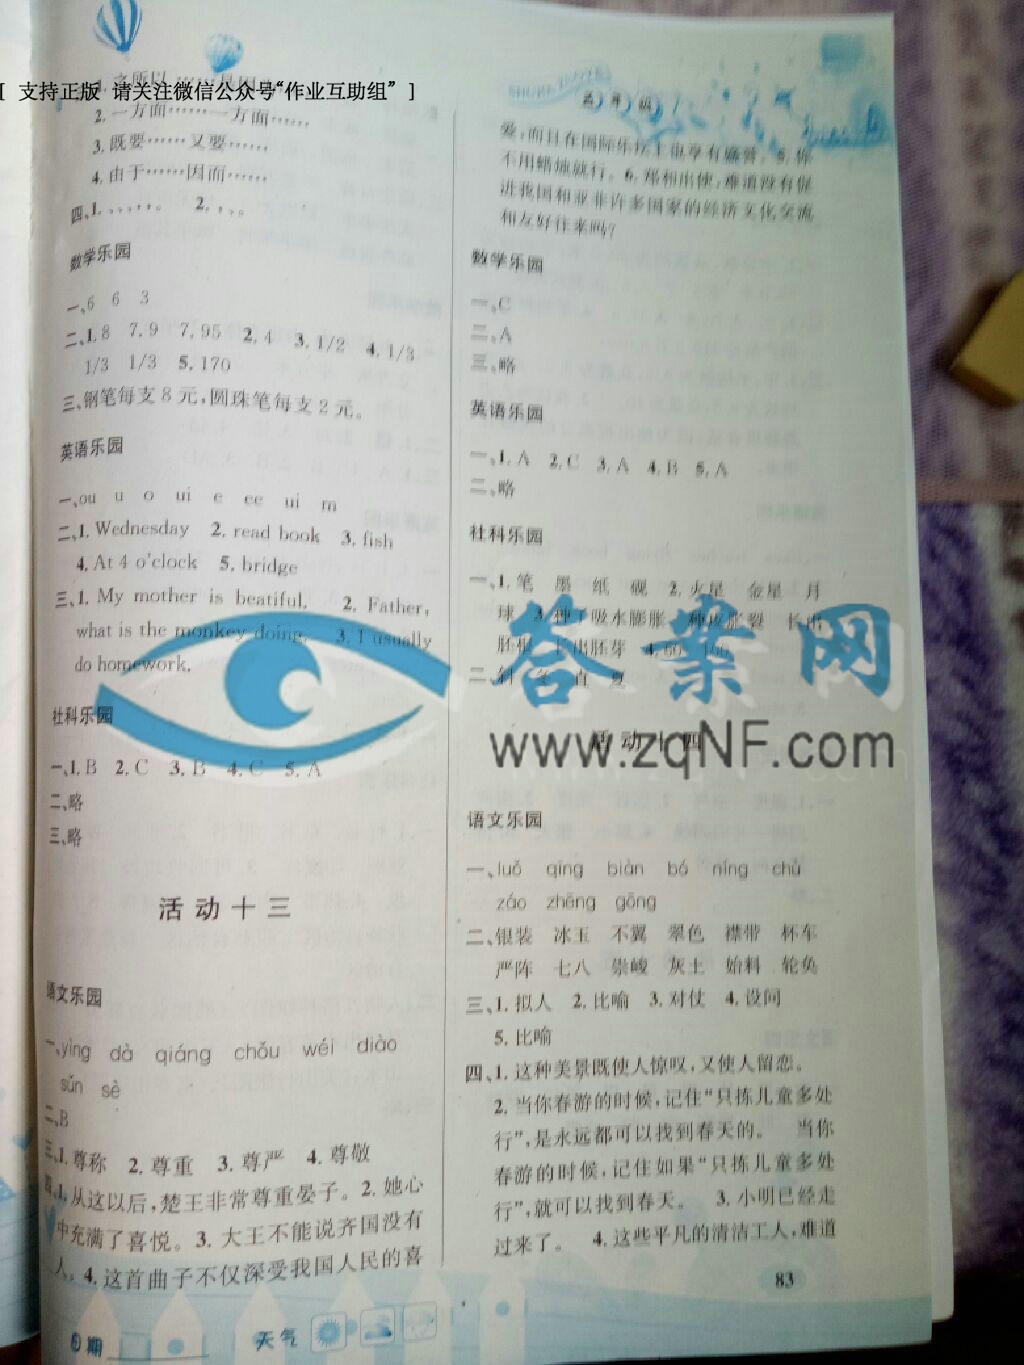 [ 支持正版 请关注微信公众号“作业互助组” ]
2. 一方面……一方面……
3. 既要……又要……
4. 由于……因而……
四、1. , , , , 。 2. , , 。
数学乐园
一、6 6 3
二、1. 8 7.9 7.95 2. 4 3. 1/2 4. 1/3
1/3 1/3 5. 170
三、钢笔每支8元,圆珠笔每支2元。
英语乐园
一、ou u o ui e ee ui m
二、1. Wednesday 2. read book 3. fish
4. At 4 o'clock 5. bridge
三、1. My mother is beatiful. 2. Father,
what is the monkey doing. 3. I usually
do homework.
社科乐园
一、1. B 2. C 3. B 4. C 5. A
二、略
三、略
活动十三
语文乐园
一、yìng dà qiáng chǒu wéi diào
sǔn sè
二、B
三、1. 尊称 2. 尊重 3. 尊严 4. 尊敬
四、1. 从这以后,楚王非常尊重晏子。2. 她心
中充满了喜悦。3. 大王不能说齐国没有
人。4. 这首曲子不仅深受我国人民的喜
五年级
爱,而且在国际乐坛上也享有盛誉。5. 你
不用惭愧就行。6. 郑和出使,难道没有促
进我国和亚非许多国家的经济文化交流
和友好往来吗?
数学乐园
一、C
二、A
三、略
英语乐园
一、1. A 2. C 3. A 4. B 5. A
二、略
社科乐园
一、1. 笔 墨 纸 砚 2. 火星 金星 月
球 3. 种子吸水膨胀 种皮胀裂 长出
胚根 长出胚芽 4. 60 100
二、斜 冬 直 夏
答案网
www.zqNF.com
活动十四
语文乐园
一、luǒ qīng biàn bó níng chù
záo zhēng gōng
二、银装 冰玉 不翼 翠色 襟带 杯车
严阵 七八 崇峻 灰土 始料 轮奂
三、1. 拟人 2. 比喻 3. 对仗 4. 设问
5. 比喻
四、1. 这种美景既使人惊叹,又使人留恋。
2. 当你春游的时候,记住“只拣儿童多处
行”,是永远都可以找到春天的。 当你
春游的时候,记住如果“只拣儿童多处
行”,就可以找到春天。 3. 小明已经走
过来了。 4. 这些平凡的清洁工人,难道
83
日期 天气